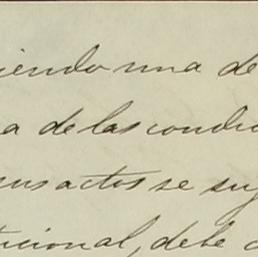 iendo una de
a de las condic
sus actos se suj
tucional, debe